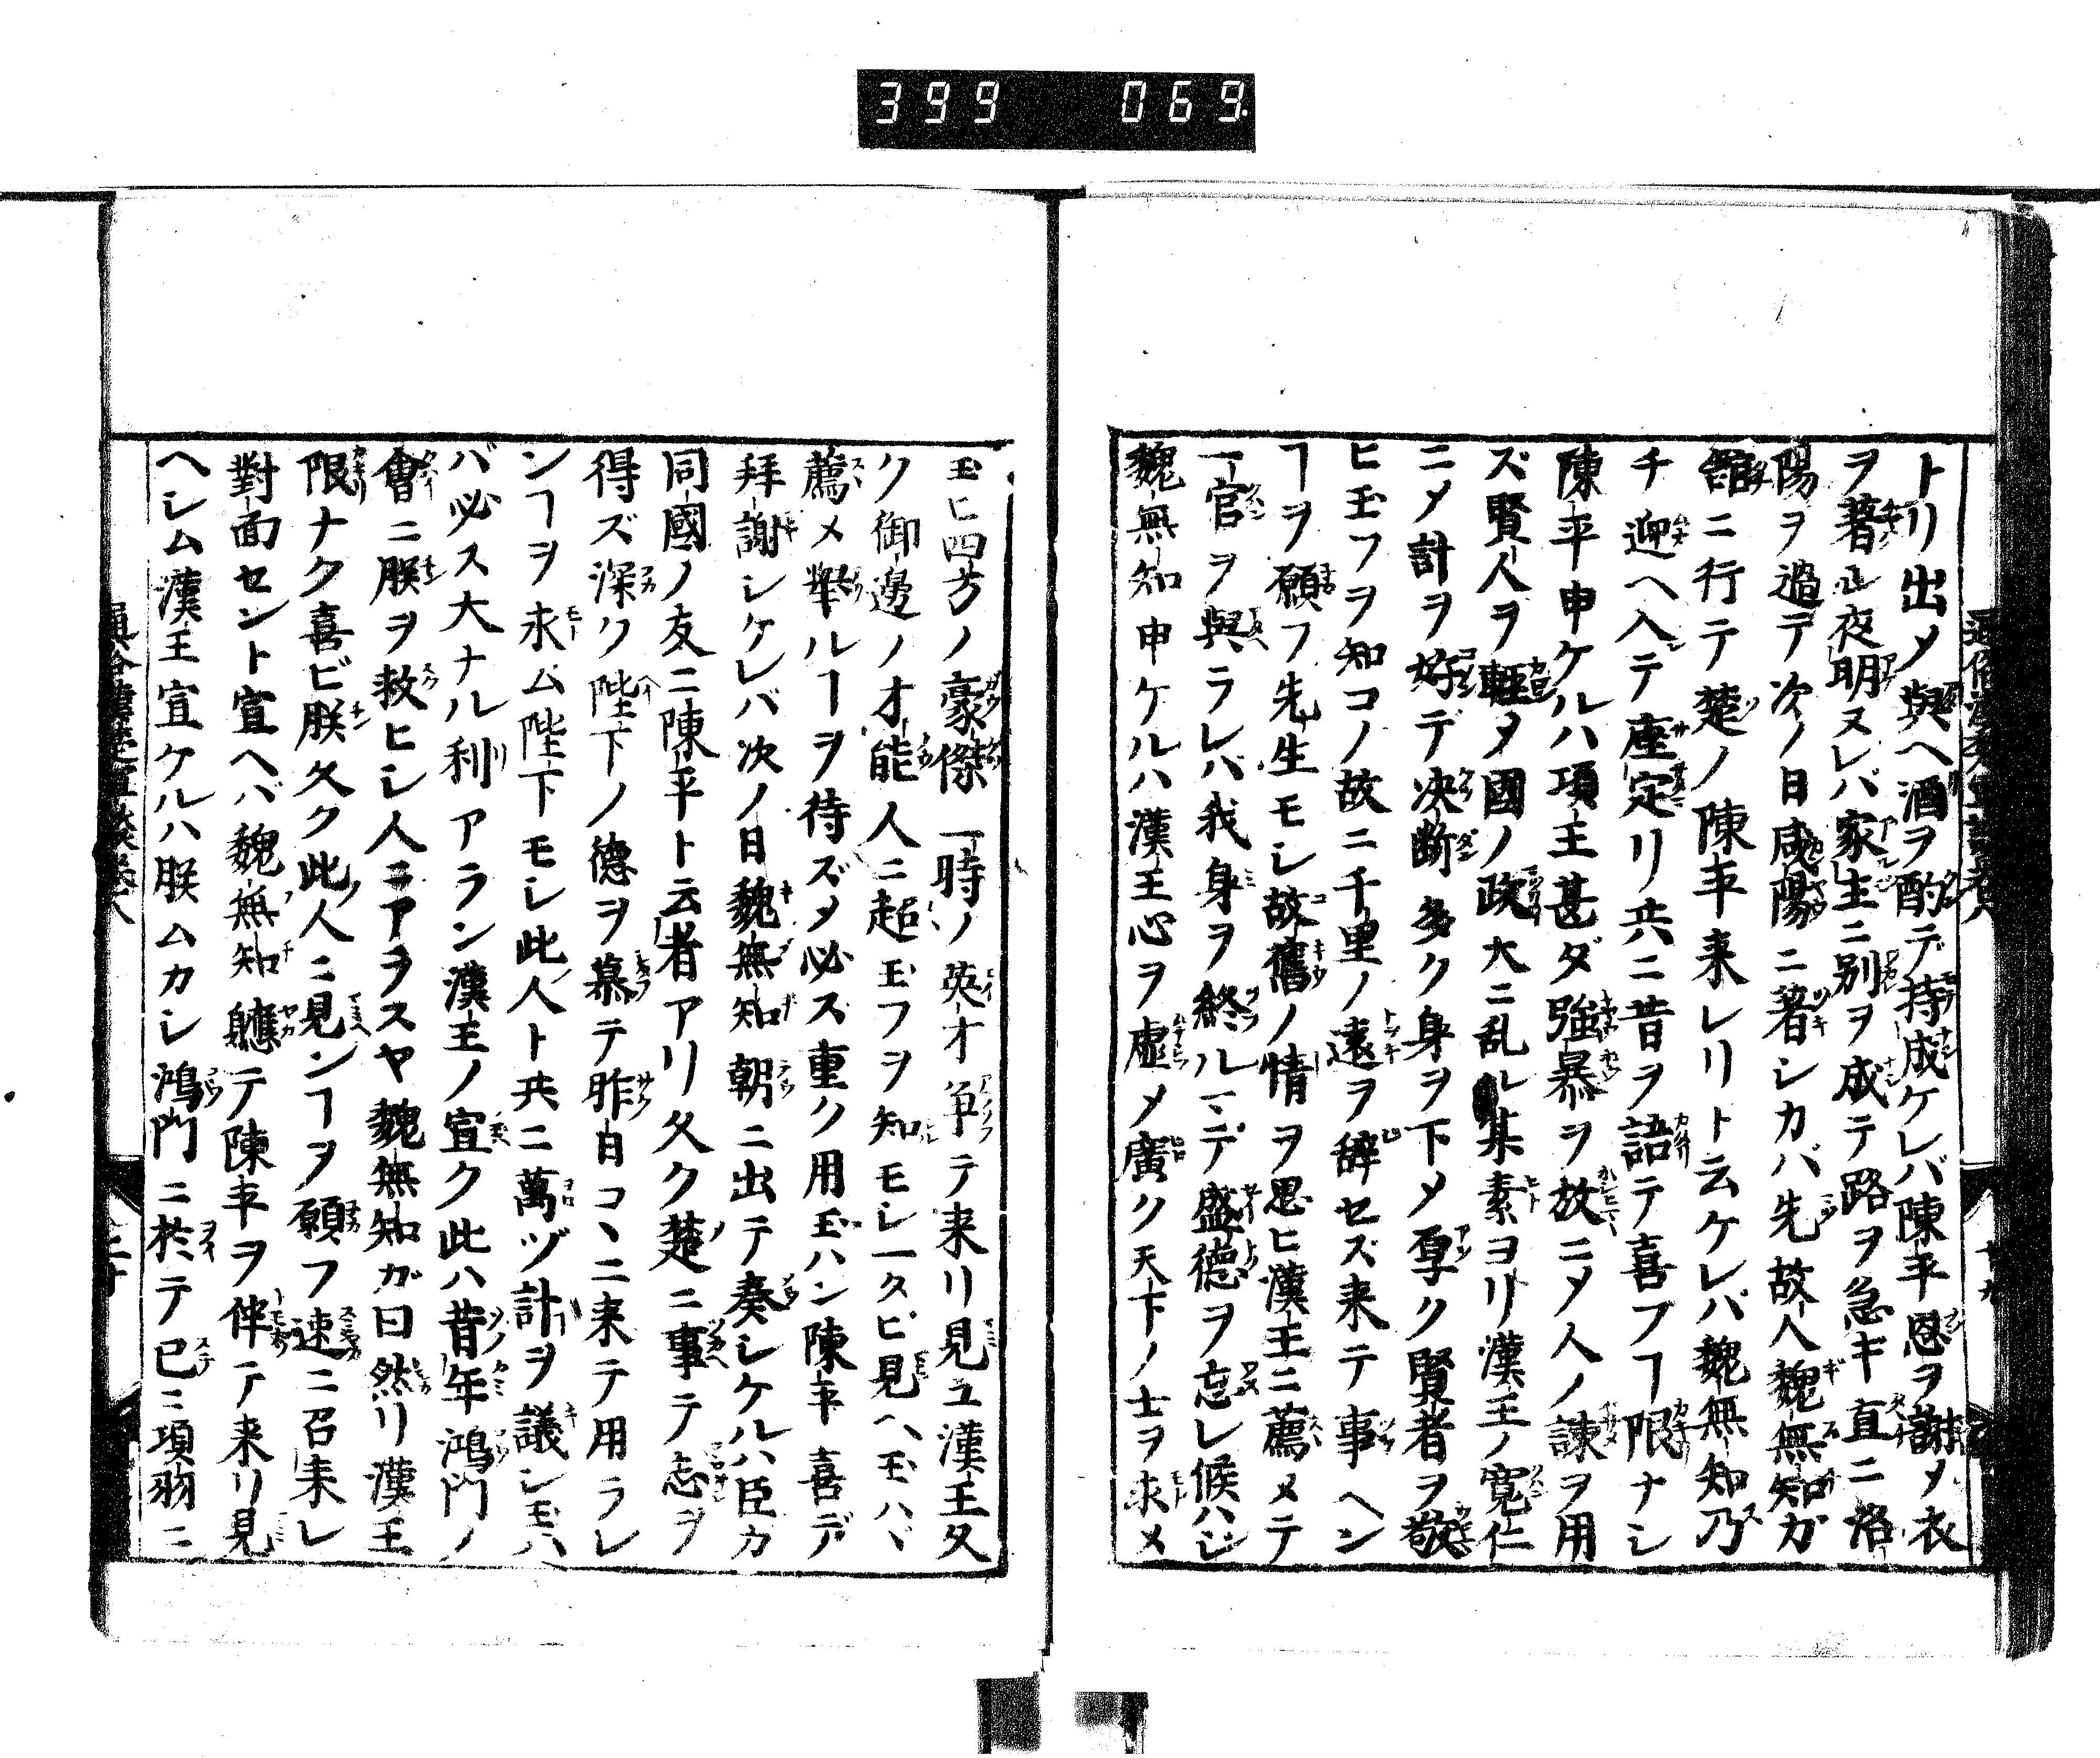 399 069
トリ出〆與ヘ酒ヲ酌デ持成ケレバ陳平恩ヲ謝〆衣
ヲ著シ夜明ヌレバ家主ニ別ヲ成テ路ヲ急ギ直ニ洛
陽ヲ過デ次ノ日咸陽ニ著シカバ先故人魏無知ガ
舘ニ行テ楚ノ陳平来レリト云ケレバ魏無知乃
チ迎ヘ入テ座定リ共ニ昔ヲ語テ喜フヿ限ナシ
陳平申ケルハ項王甚ダ強暴ヲ放ニ〆人ノ諫ヲ用
ズ賢人ヲ軽〆國ノ政大ニ乱ル某素ヨリ漢王ノ寛仁
ニ〆計ヲ好デ决断多ク身ヲ下〆厚ク賢者ヲ敬
ヒ玉フヲ知コノ故ニ千里ノ遠ヲ辞セズ来テ事ヘン
ヿヲ願フ先生モシ故舊ノ情ヲ思ヒ漢王ニ薦メテ
一官ヲ與ラレバ我身ヲ終ルマデ盛徳ヲ忘レ候ハジ
魏無知申ケルハ漢王心ヲ虚〆廣ク天下ノ士ヲ求メ
玉ヒ四方ノ豪傑一時ノ英才争テ来リ見ユ漢王久
ク御邊ノ才能人ニ超玉フヲ知モシ一タビ見ヘ玉ハヾ
薦メ舉ルヿヲ待ズ〆必ス重ク用玉ハン陳平喜デ
拜謝シケレバ次ノ日魏無知朝ニ出テ奏シケルハ臣カ
同國ノ友ニ陳平ト云者アリ久ク楚ニ事テ志ヲ
得ズ深ク陛下ノ德ヲ慕テ昨日コヽニ来テ用ラレ
ンヿヲ求ム陛下モシ此人ト共ニ萬ヅ計ヲ議シ玉ハ
バ必ス大ナル利アラン漢王ノ宣ク此ハ昔年鴻門ノ
會ニ朕ヲ救ヒシ人ニアラスヤ魏無知ガ曰然リ漢王
限ナク喜ビ朕久ク此人ニ見ンヿヲ願フ速ニ召来レ
對面セント宣ヘバ魏無知軈テ陳平ヲ伴テ来リ見
ヘシム漢王宣ケルハ朕ムカシ鴻門ニ於テ已ニ項羽ニ